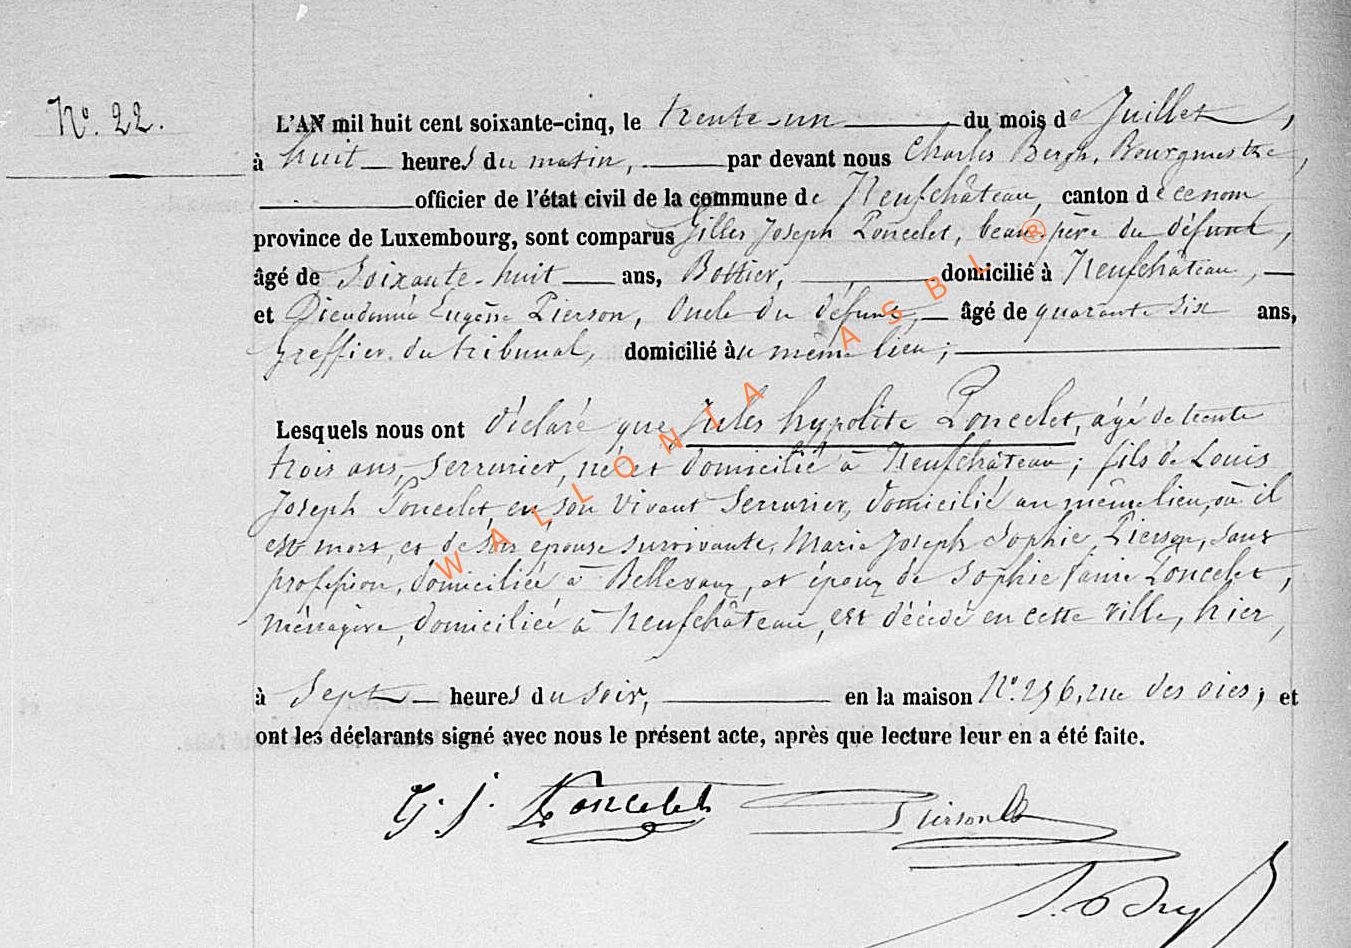 N.º 22.
L'AN mil huit cent soixante-cinq, le trente-un du mois de Juillet,
à huit heures du matin, par devant nous Charles Bergh, Bourgmestre,
officier de l'état civil de la commune de Neufchâteau, canton de ce nom
province de Luxembourg, sont comparus Gilles Joseph Poncelet, beau-père du défunt,
âgé de Soixante-huit ans, Bottier, domicilié à Neufchâteau,
et Dieudonné Eugène Pierson, Oncle du défunt, âgé de quarante six ans,
greffier du tribunal, domicilié au même lieu;
Lesquels nous ont déclaré que Jules hypolite Poncelet, âgé de trente
trois ans, Serrurier, né et domicilié à Neufchâteau; fils de Louis
Joseph Poncelet, en son vivant Serrurier, domicilié au même lieu, où il
est mort, et de son épouse survivante, Marie Joseph Sophie Pierson, sans
profession, domiciliée à Bellevaux, et époux de Sophie Fanie Poncelet,
ménagère, domiciliée à Neufchâteau, est décédé en cette ville, hier,
à Sept heures du soir, en la maison N.º 256, rue des oies; et
ont les déclarants signé avec nous le présent acte, après que lecture leur en a été faite.
G. J. Poncelet Pierson
WALLONIA ASBL ®